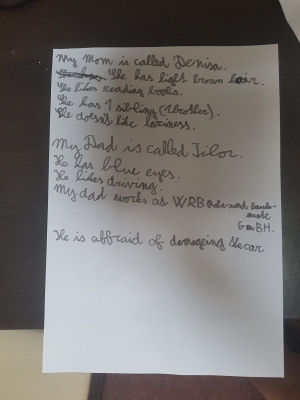 My Mom is called Denisa.
She has light brown hair.
She likes reading books.
She has 1 sibling (1 brother).
She doesn't like laziness.
My Dad is called Tibor.
He has blue eyes.
He likes driving.
My dad works as WRB
GmBH.
He is affraid of damageing the car